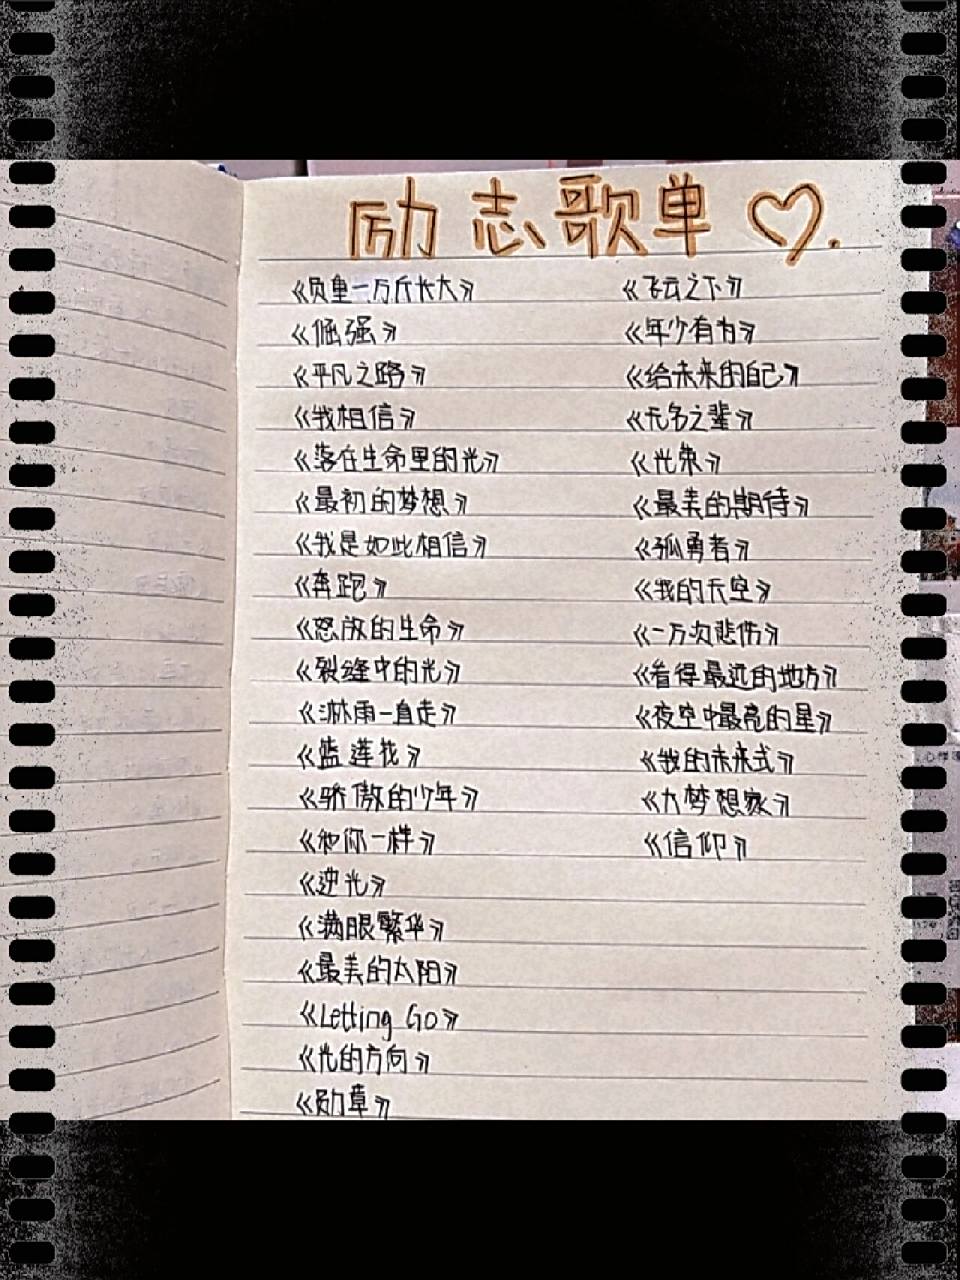 励志歌单♡.
《负重一万斤长大》
《倔强》
《平凡之路》
《我相信》
《落在生命里的光》
《最初的梦想》
《我是如此相信》
《奔跑》
《怒放的生命》
《裂缝中的光》
《淋雨一直走》
《蓝莲花》
《骄傲的少年》
《和你一样》
《逆光》
《满眼繁华》
《最美的太阳》
《Letting Go》
《光的方向》
《勋章》
《飞云之下》
《年少有为》
《给未来的自己》
《无名之辈》
《光束》
《最美的期待》
《孤勇者》
《我的天空》
《一万次悲伤》
《看得最远的地方》
《夜空中最亮的星》
《我的未来式》
《大梦想家》
《信仰》